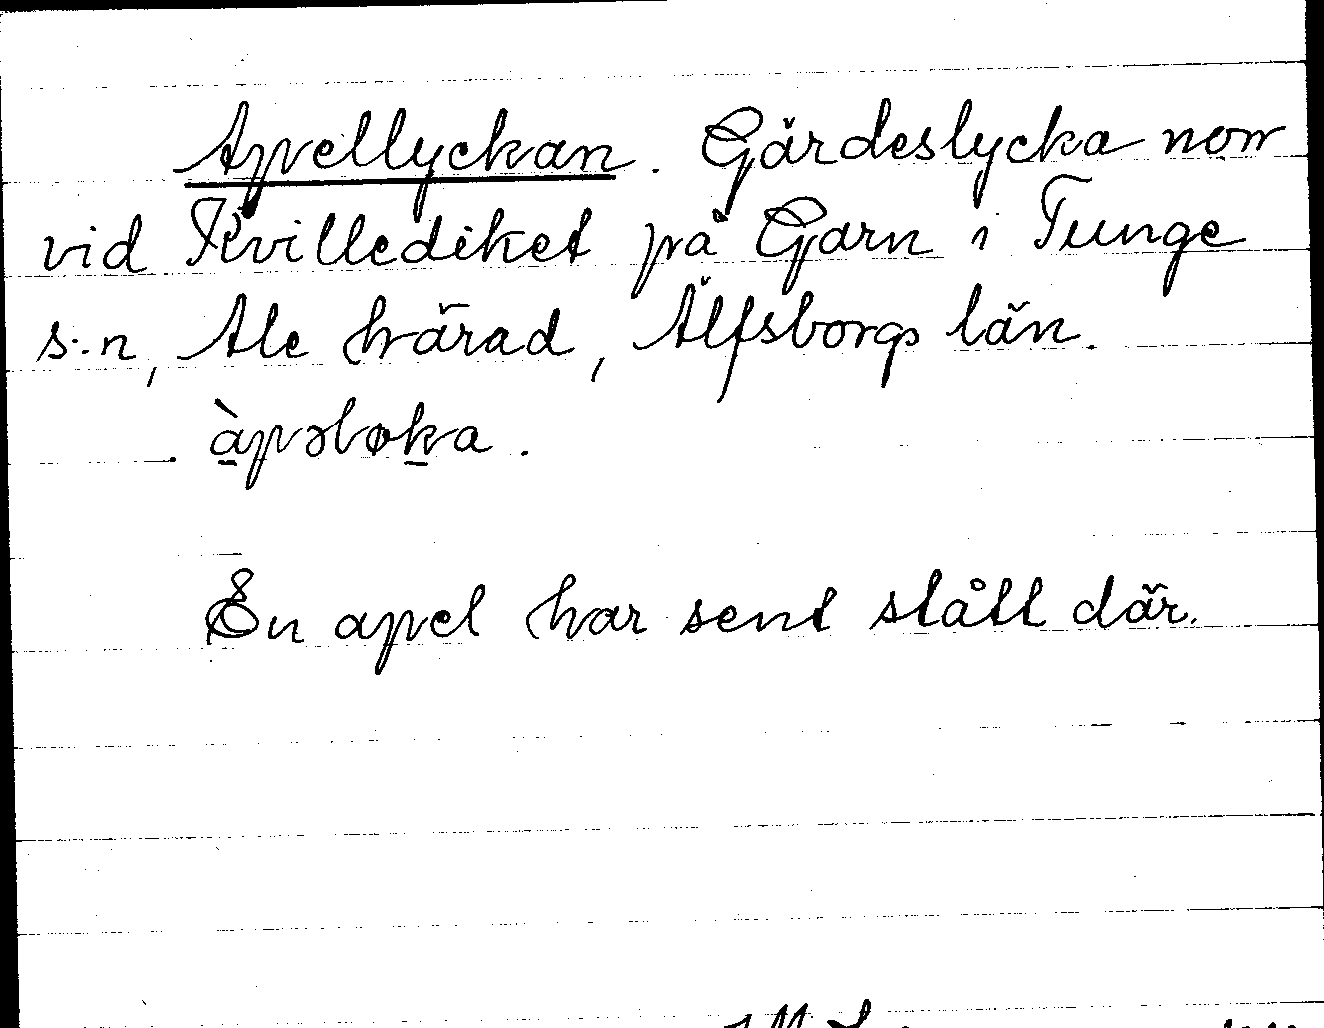 Apellyckan. Gärdeslycka norr
vid Kvillediket på Garn i Tunge
s:n, Ale härad, Älfsborgs län.
àpəløka.
En apel har sent stått där.